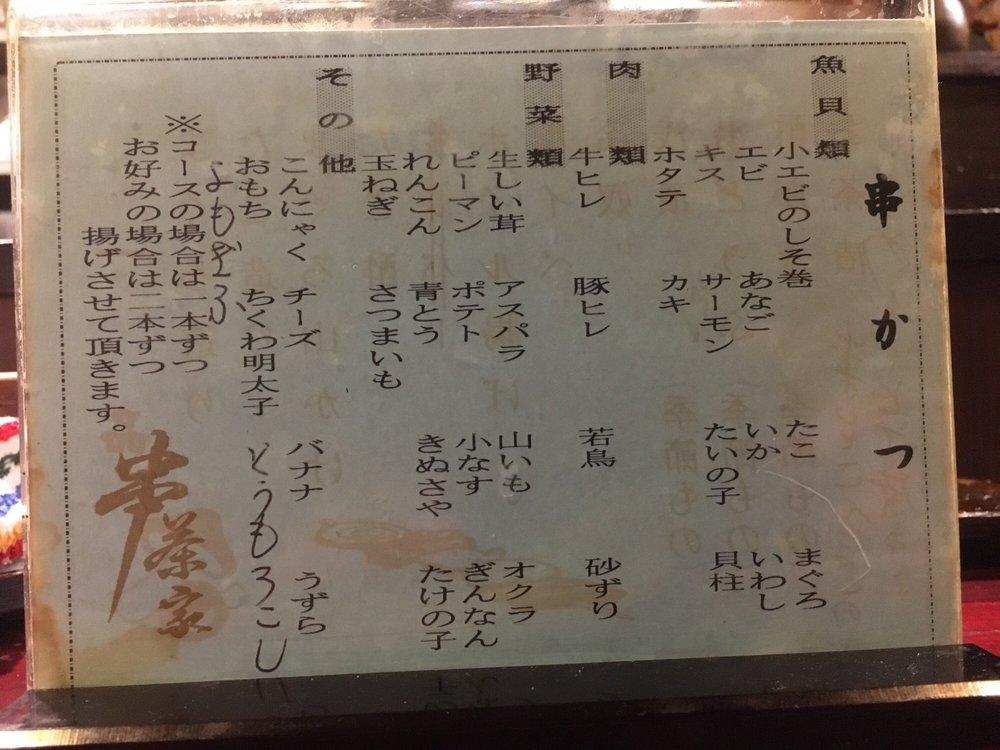 串かつ
魚貝類
小エビのしそ巻 たこ まぐろ
エビ あなご いか いわし
キス サーモン たいの子 貝柱
ホタテ カキ
肉類
牛ヒレ 豚ヒレ 若鳥 砂ずり
野菜類
生しい茸 アスパラ 山いも オクラ
ピーマン ポテト 小なす ぎんなん
れんこん 青とう きぬさや たけの子
玉ねぎ さつまいも
その他
こんにゃく チーズ バナナ うずら
おもち ちくわ明太子 とうもろこし
よもぎふ
※コースの場合は一本ずつ
お好みの場合は二本ずつ
揚げさせて頂きます。
串茶家